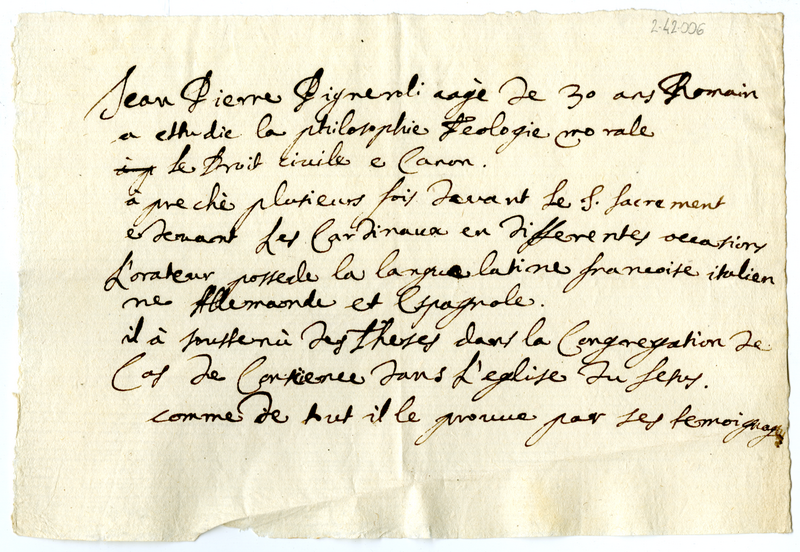 2-42-006
Jean Pierre Pigneroli aagè de 30 ans Romain
a ettudie la philosophie Teologie morale
le Droit civile e Canon.
à prechè plusieurs fois davant le S. Sacrement
e devant Les Cardinaux en differentes occasions
L'orateur possede la langue latine francoise italien
ne Allemande et Espagnole.
il à souttenù des Theses dans la Congregation de
Cas de Consience dans L'eglise du Jesus.
comme de tout il le prouve par ses temoignages